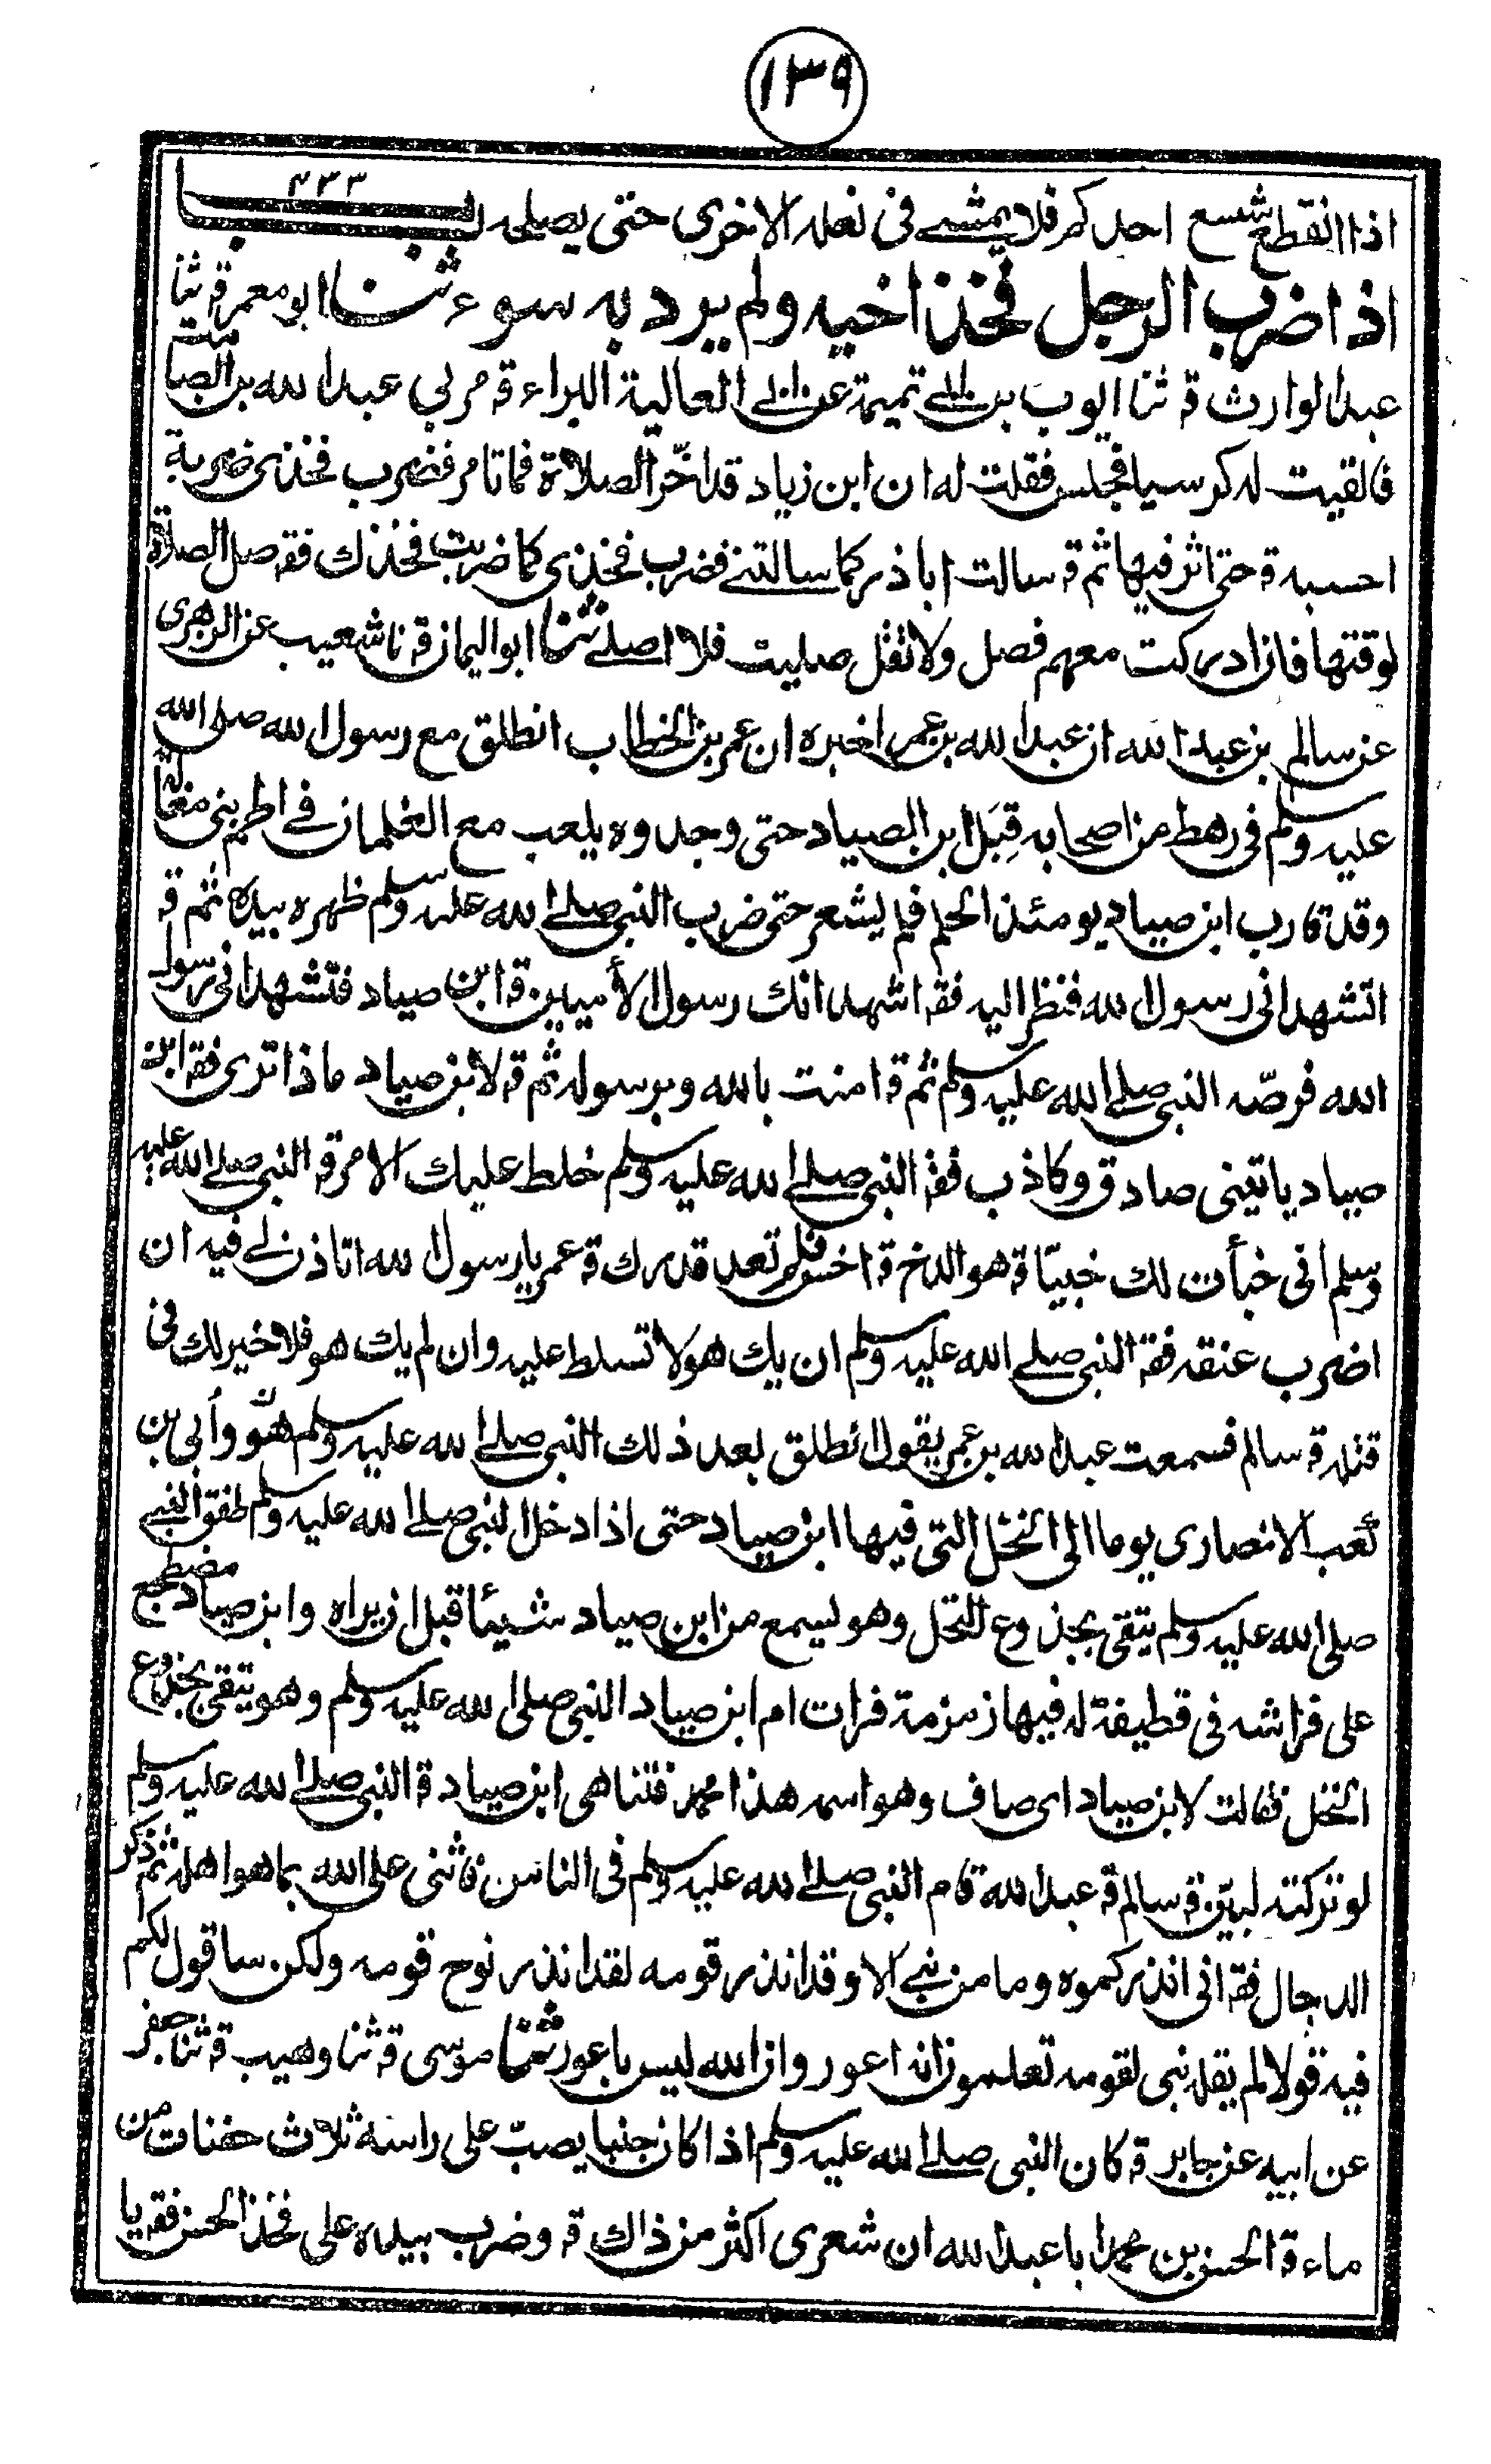 ١٣٩
اذا انقطع شسع احدكم فلا يمشے فى نعله الاخرى حتى يصلحه باب ٤٣٣
اذا ضرب الرجل فخذ اخيه ولم يرد به سوء ثنا ابو معمر قه ثنا
عبد الوارث قه ثنا ايوب بن ابے تميمة عن ابے العالية البراء قه مر بي عبد الله بن الصامت
فالقيت له كرسيا فجلس فقلت له ان ابن زياد قد اخّر الصلاة فما تامر فضرب فخذى ضربة
احسبه قه حتى اثر فيها ثم قه سالت اباذر كما سالتنے فضرب فخذى كما ضربت فخذك فقه صل الصلاة
لوقتها فان ادركت معهم فصل ولا تقل صليت فلا اصلے ثنا ابو اليمان قه نا شعيب عن الزهرى
عن سالم بن عبد الله ان عبد الله بن عمر اخبره ان عمر بن الخطاب انطلق مع رسول الله صلى الله
عليه وسلم فى رهط من اصحابه قِبَل ابن الصياد حتى وجدوه يلعب مع الغلمان فے اطم بنى مغالة
وقد قارب ابن صياد يومئذ الحلم فلم يشعر حتى ضرب النبى صلے الله عليه وسلم ظهره بيده ثم قه
اتشهد انى رسول الله فنظر اليه فقه اشهد انك رسول الأميين قه ابن صياد فتشهد انى رسول
الله فرصّه النبى صلے الله عليه وسلم ثم قه امنت بالله وبرسوله ثم قه لابن صياد ماذا ترى فقه ابن
صياد ياتينى صادق وكاذب فقه النبى صلے الله عليه وسلم خلط عليك الامر قه النبى صلے الله عليه
وسلم انى خبأت لك خبيّا قه هو الدخ قه اخس فلم تعد قدرك قه عمر يا رسول الله اتاذن لے فيه ان
اضرب عنقه فقه النبى صلے الله عليه وسلم ان يك هو لا تسلط عليه وان لم يك هو فلا خير لك فى
قتله قه سالم فسمعت عبد الله بن عمر يقول انطلق بعد ذلك النبى صلے الله عليه وسلم هو وأبى بن
كعب الانصارى يوما الى النخل التى فيها ابن صياد حتى اذا دخل النبى صلے الله عليه وسلم طفق النبے
صلى الله عليه وسلم يتقى بجذوع النخل وهو يسمع من ابن صياد شيئا قبل ان يراه وابن صياد مضطجع
على فراشه فى قطيفة له فيها زمزمة فرات ام ابن صياد النبى صلى الله عليه وسلم وهو يتقى بجذوع
النخل فقالت لابن صياد اى صاف وهو اسمه هذا محمد فتناهى ابن صياد قه النبى صلے الله عليه وسلم
لو تركته لبيّن قه سالم قه عبد الله قام النبى صلے الله عليه وسلم فى الناس فاثنى على الله بما هو اهله ثم ذكر
الدجال فقه انى انذركموه وما من نبے الا وقد انذر قومه لقد انذر نوح قومه ولكن ساقول لكم
فيه قولا لم يقله نبى لقومه تعلمون انه اعور وان الله ليس باعور ثنا موسى قه ثنا وهيب قه ثنا جعفر
عن ابيه عن جابر قه كان النبى صلے الله عليه وسلم اذا كان جنبا يصبّ على راسه ثلاث حفنات من
ماء قه الحسن بن محمد ابا عبد الله ان شعرى اكثر من ذاك قه وضرب بيده على فخذ الحسن فقه يا